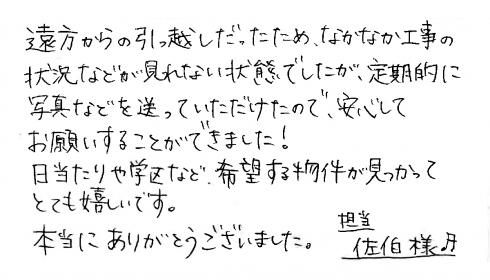 遠方からの引っ越しだったため、なかなか工事の
状況などが見れない状態でしたが、定期的に
写真などを送っていただけたので、安心して
お願いすることができました!
日当たりや学区など、希望する物件が見つかって
とても嬉しいです。
本当にありがとうございました。
担当
佐伯様♬